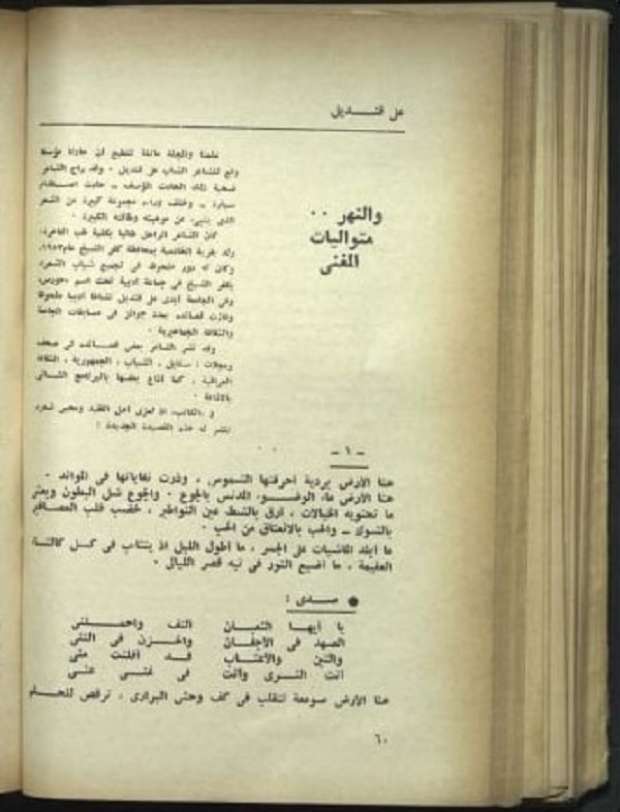 على قنديل
والنهر ..
متواليات
المغنى
علمنا والمجلة ماثلة للطبع أن حادثا مؤسفا
وقع للشاعر الشاب على قنديل . وقد راح الشاعر
ضحية ذلك الحادث المؤسف ــ حادث اصطدام
سيارة ــ وخلف وراءه مجموعة كبيرة من الشعر
الذى ينبىء عن موهبته وطاقته الكبيرة .
كان الشاعر الراحل طالبا بكلية طب القاهرة،
ولد بقرية بمحافظة كفر الشيخ عام ١٩٥٣
وكان له دور ملحوظ فى تجميع شباب الشعراء
بكفر الشيخ فى جماعة أدبية تحت اسم
وفى الجامعة أبدى على قنديل نشاطا أدبيا ملحوظا
وفازت قصائده بعدة جوائز فى مسابقات الجامعة
والثقافة الجماهيرية .
وقد نشر الشاعر بعض قصائده فى صحف
ومجلات : سنابل ، الشباب ، الجمهورية ، الثقافة
العراقية ، كما أذاع بعضها بالبرنامج الثانى
بالاذاعة .
و «الكاتب» اذ تعزى أهل الفقيد ومحبى شعره
تنشر له هذه القصيدة الجديدة :
ــ ١ ــ
هنا الأرض بردية احرقتها الشموس ، وذرت نفاياتها فى الموائد .
هنا الأرض ماء الوضوء المدنس بالجوع . والجوع شل البطون وبعثر
ما تحتويه الخيالات ، فرق بالشط عين النواطير ، خضب قلب العصافير
بالشوك ــ والحب بالانعتاق من الحب .
ما أبلد الماشيات على الجسر ، ما أطول الليل اذ ينتاب فى كل كائنة
العقيمة ، ما أضيع النور فى تيه قصر الليالى .
● صدى :
يا أيها الثعبان التف واحضنى
السهد فى الأجفان والحزن فى النى
والتين والأعناب قد أفلتت منى
أنت الثرى وأنت فى غنى عنى
هنا الأرض سومعة تتقلب فى كف وحش البرارى ، ترقص للحلم
٦٠